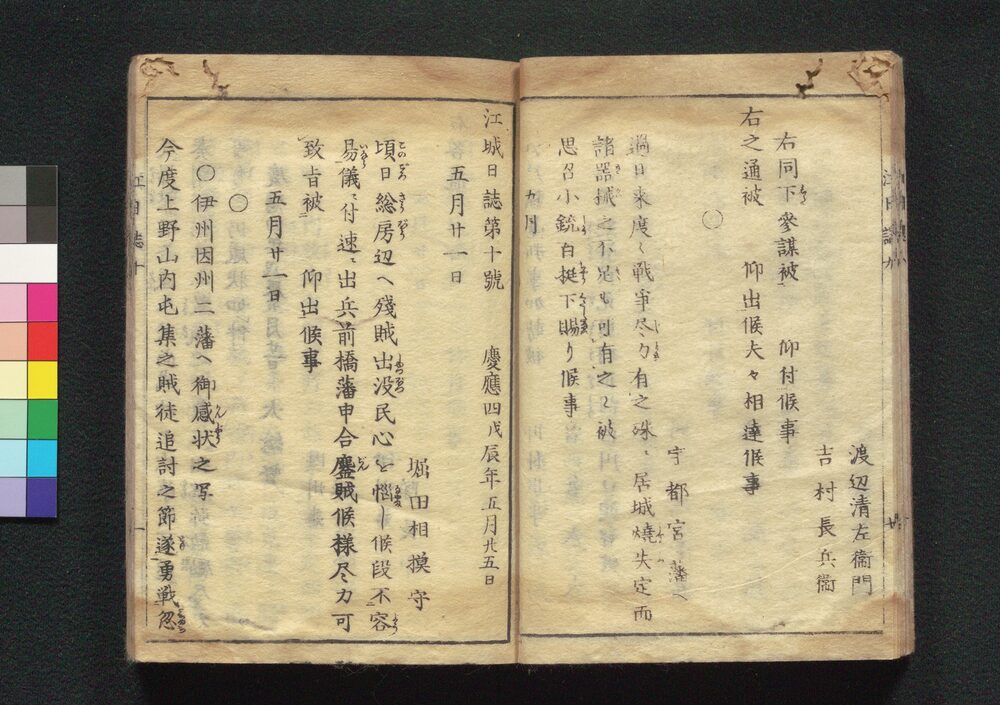 渡辺清左衞門
吉村長兵衞
右同下參謀被 仰付候事
右之通被 仰出候夫々相達候事
○
宇都宮藩へ
過日来度々戦争尽力有之殊ニ居城燒失定而
諸器械之不足も可有之ニ被
思召小銃百挺下賜り候事
九月
江城日誌第十號 慶應四戊辰年五月廿五日
五月廿一日
堀田相摸守
頃日総房辺へ殘賊出没民心を惱し候段不容
易儀ニ付速ニ出兵前橋藩申合鏖賊候樣尽力可
致旨被 仰出候事
○五月廿一日
○伊州因州二藩へ御感状之写
今度上野山内屯集之賊徒追討之節遂勇戦忽